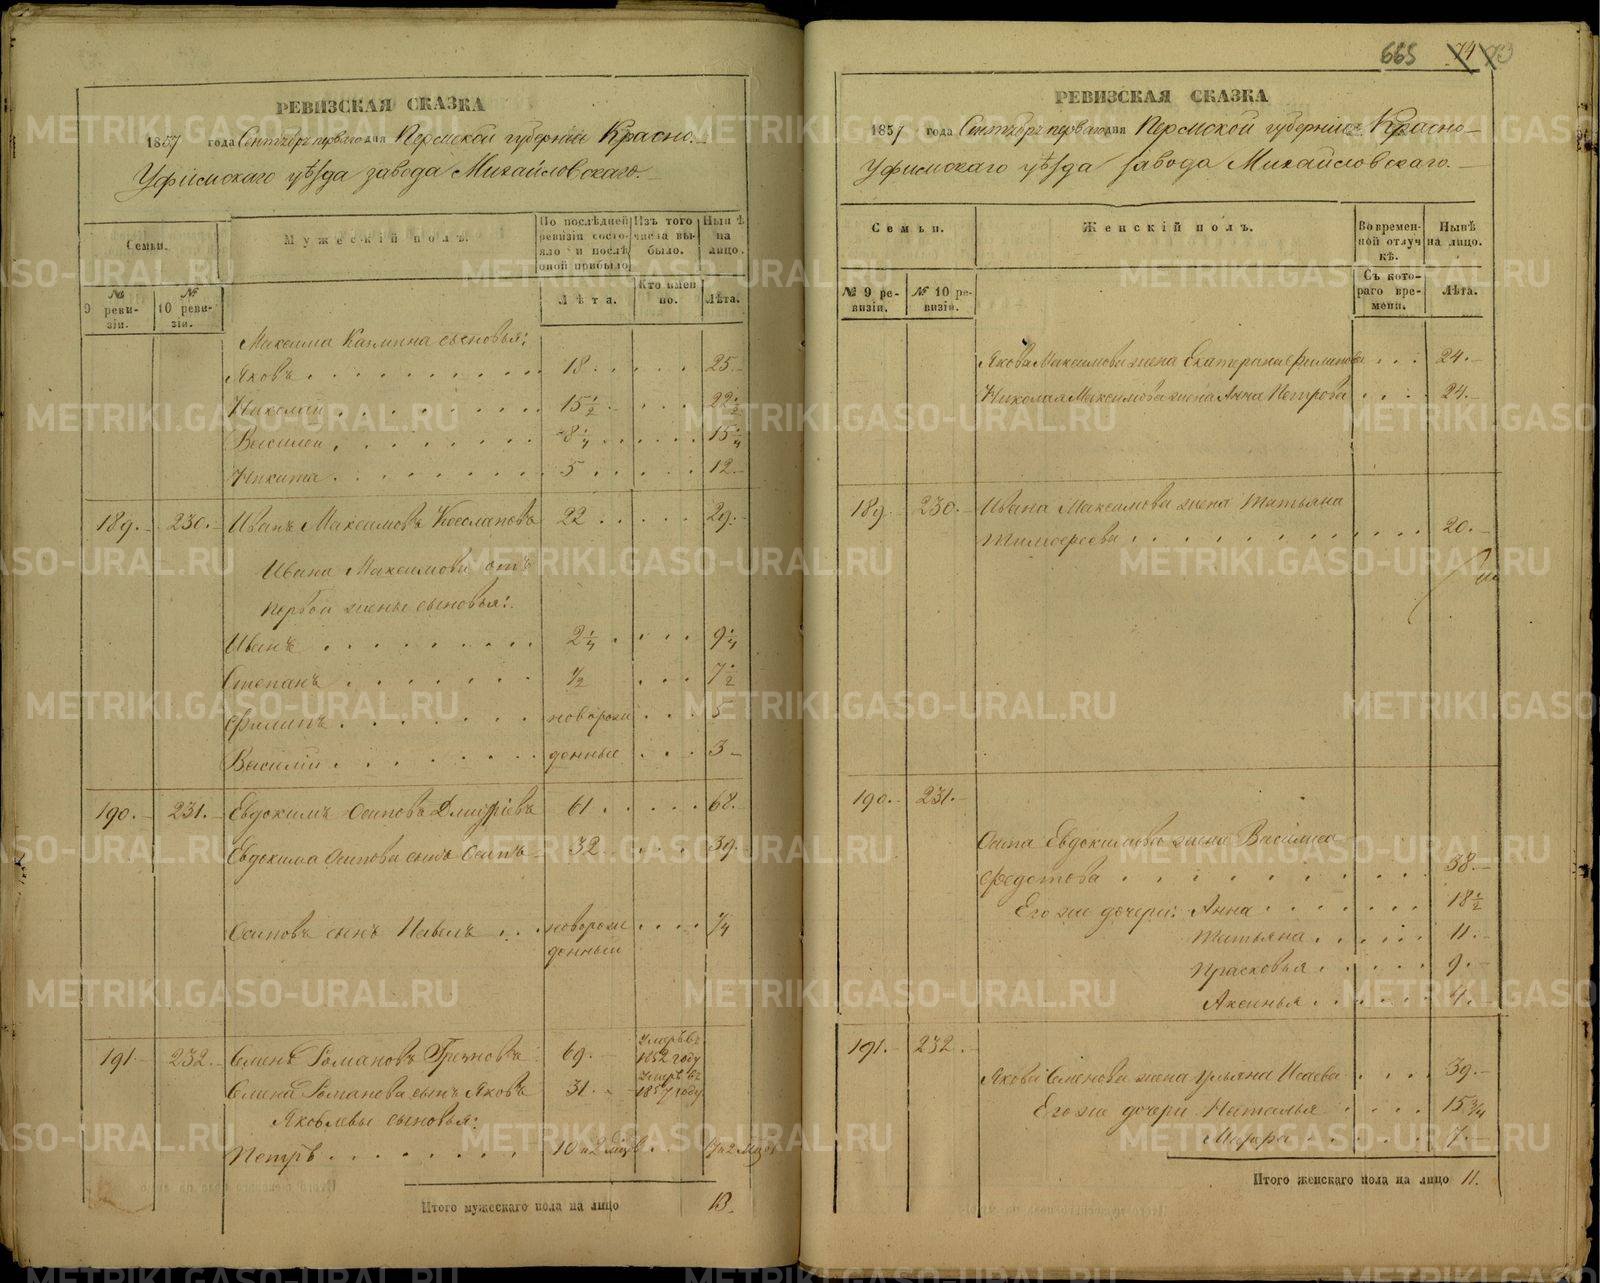 РЕВИЗСКАЯ СКАЗКА
1857 года Сентября перваго дня Пермской губернiи Красно-
Уфимскаго уѣзда завода Михайловскаго.
Семьи.
Мужескiй полъ.
По послѣдней ревизiи состояло и послѣ оной прибыло.
Изъ того числа выбыло.
Нынѣ на лицо.
№ 9 ревизiи.
№ 10 ревизiи.
Лѣта.
Кто именно.
Лѣта.
Максима сыновья:
Яковъ 18 25.
Николай 15 1/2 22 1/2
Василiй 8 1/4 15 1/4
Никита 5 12.
189. 230. Иванъ Максимовъ 22 29.
Ивана Максимова отъ
первой жены сыновья:
Иванъ 2 1/4 9 1/4
Степанъ 1/2 7 1/2
Филипъ новорож 5
Василiй денные 3
190. 231. Евдокимъ Осиповъ Дмитрiевъ 61 68.
Евдокима Осипова сынъ Осипъ 32 39.
Осиповъ сынъ Павелъ новорож 1/4
денный
191 232. Семенъ Романовъ 69. Умеръ въ 1852 году
Семена Романова сынъ Яковъ 31. Умеръ въ 1857 году
Яковлевы сыновья:
Петръ 10 и 2 мѣс 17 и 2 мѣс
Итого мужескаго пола на лицо 13.
665 74 73
РЕВИЗСКАЯ СКАЗКА
1857 года Сентября перваго дня Пермской губернiи Красно-
Уфимскаго уѣзда завода Михайловскаго.
Семьи.
Женскiй полъ.
Во временной отлучкѣ.
Нынѣ на лицо.
№ 9 ревизiи.
№ 10 ревизiи.
Съ котораго времени.
Лѣта.
Якова Максимова жена Екатерина Филипова 24.
Николая Максимова жена Анна Петрова 24.
189. 230. Ивана Максимова жена Татьяна
Тимофеева 20.
190. 231.
Осипа Евдокимова жена Василиса
Федотова 38.
Его же дочери: Анна 18 1/2
Татьяна 11.
Прасковья 9.
Аксинья 4.
191. 232.
Якова Семенова жена Ульяна Исаева 39.
Его же дочери Наталья 15 3/4
Марфа 7.
Итого женскаго пола на лицо 11.
METRIKI.GASO-URAL.RU